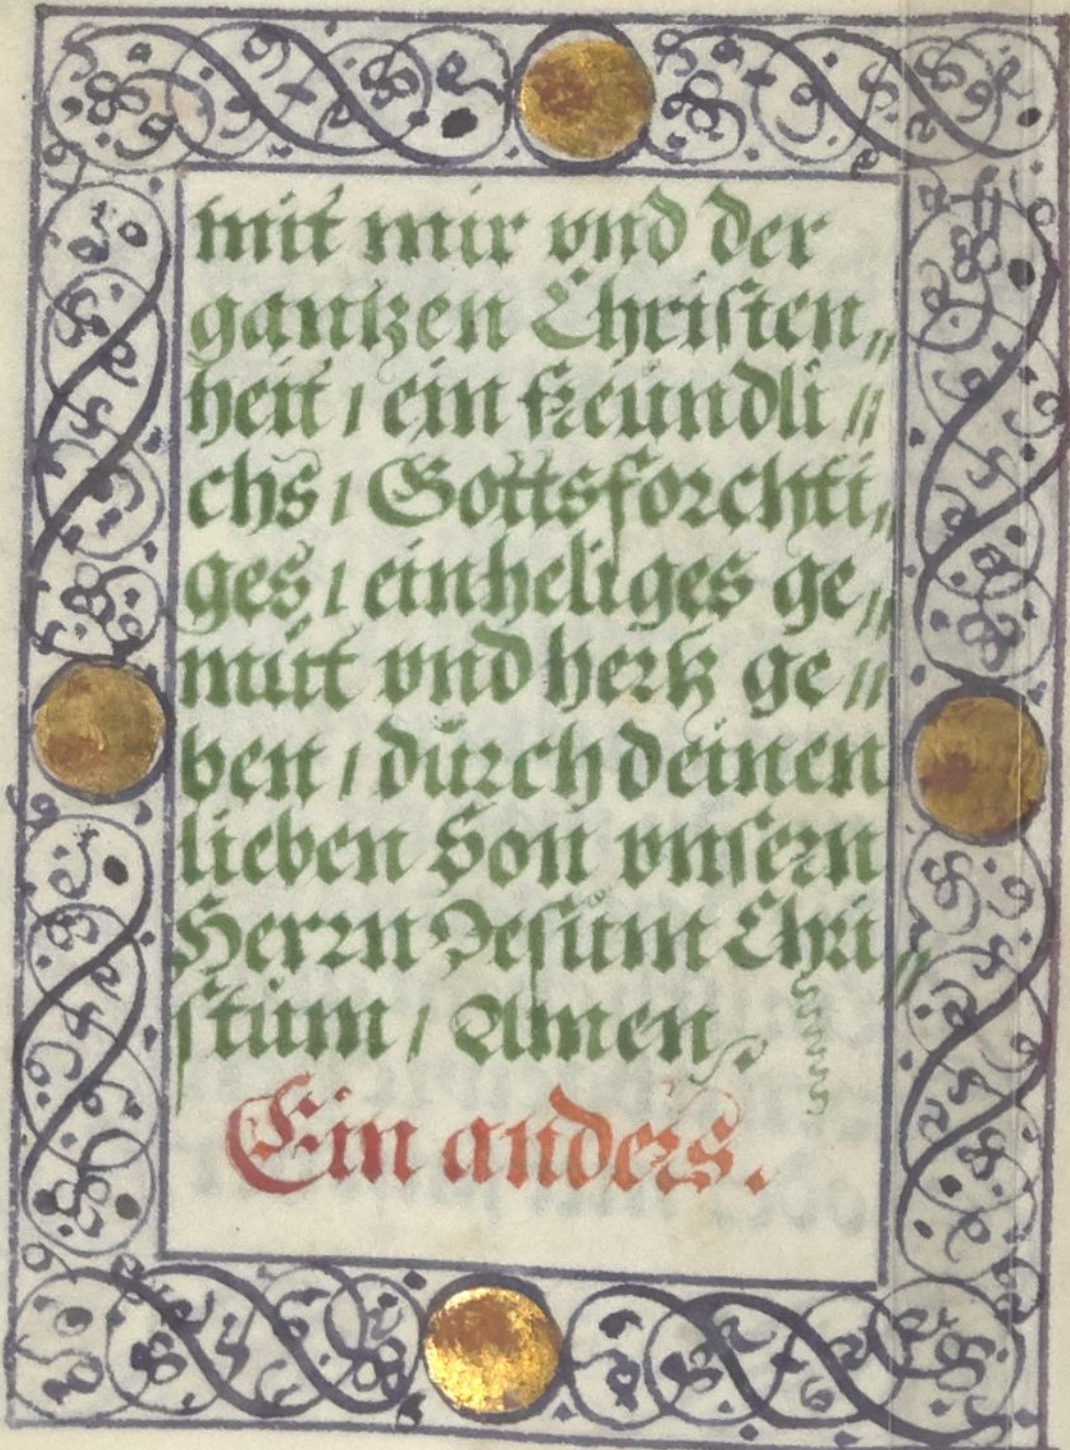 mit mir vnd der
gantzen Christen„
heit / ein freündli„
chs / Gottsforchti„
ges / einheliges ge„
müt vnd hertz ge„
ben / dürch deinen
lieben Son vnsern
Herrn Jesüm Chri„
stüm / Amen.
Ein anders.